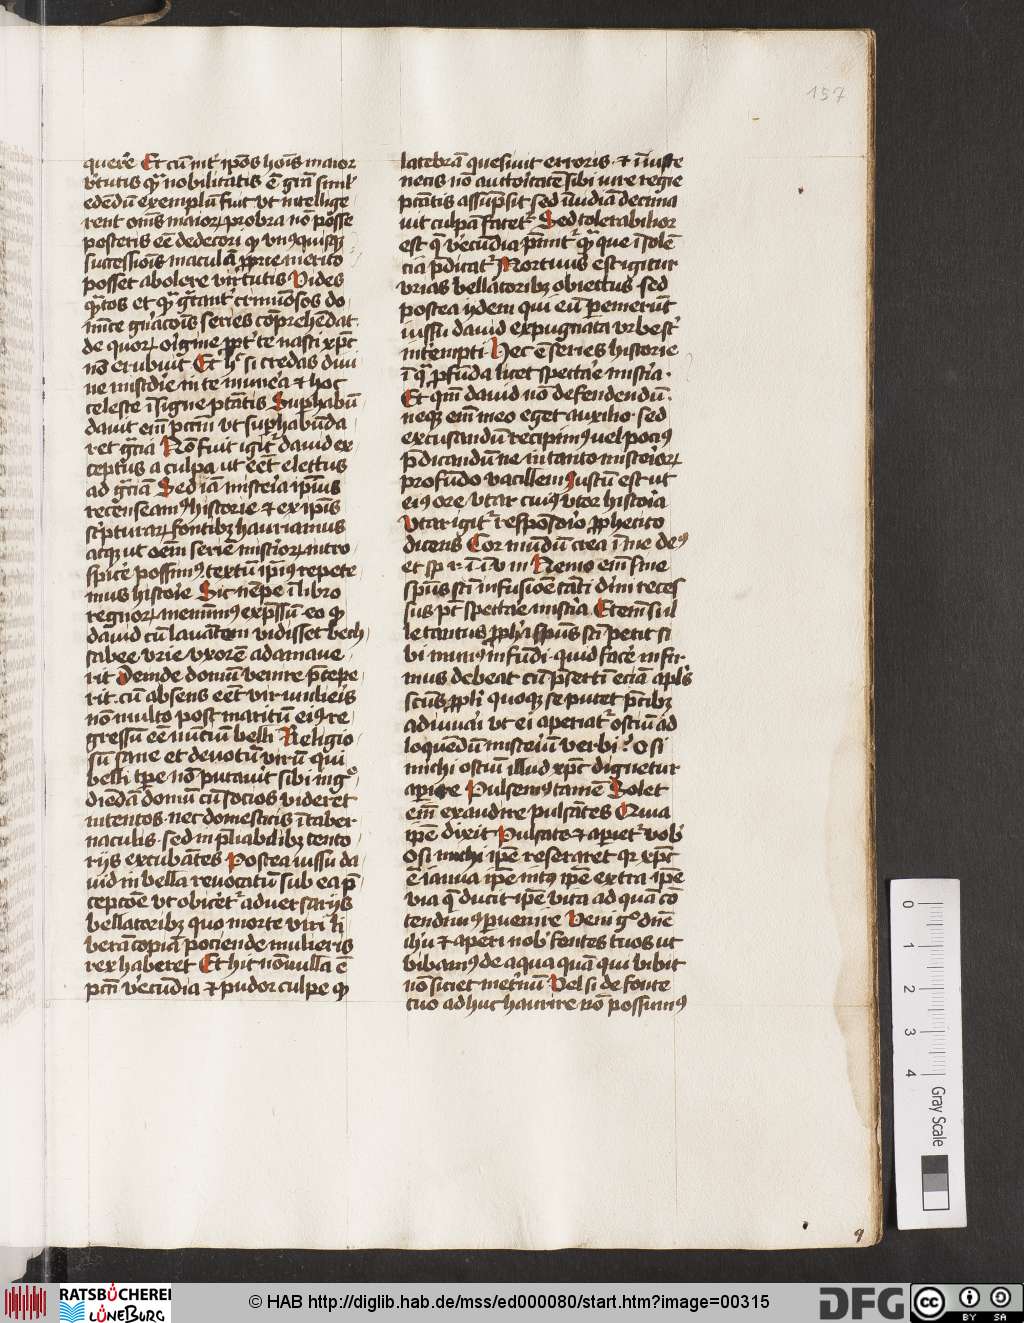 157
quere Et cū int̄ ip̄os hoīs maior
v̄tutis qͣ nobilitatis ē gr̄a
edēdū exemplū fuit vt intellige
rent om̄s maioꝝ probra nō posse
posteris eē dedecori qͥ vnꝰquisqꝫ
successiōis maculā p̄prie merito
posset abolere virtutis Vides
qͣtos et qͣ criminosos do
mīce gn̄acōis series cōprehēdat
de quoꝝ origine ꝓpt̄ te nasci xp̄c
nō erubuit Et hͦ si credas diui
ne mīsdie in te munera ⁊ hoc
celeste īsigne ptātis Suphabū
dauit em̄ pccm̄ vt suphabūda
ret gr̄cia Nō fuit igitᷣ dauid ex
ceptus a culpa ut eēt electus
ad gr̄ciā Sed iā misteria ip̄ius
recenseamꝰ historie ⁊ ex ip̄is
scripturaꝝ fontibꝫ hauriamus
atqꝫ ut oēm seriē mistioꝝ intro
spicē possimꝰ textū ip̄iꝰ repete
mus historie Sic nēpe ī libro
regnoꝝ meminimꝰ exp̄ssū eo qͥ
dauid cū lauātem vidisset bech
sabee vrie vxorē adamaue
rit Deinde domū venire p̄cepe
rit cū absens eēt vir mulieris
nō multo post maritū eiꝰ re
gressū eē nūciū belli Religio
sū sane et deuotū virū qui
belli tp̄e nō putauit sibi ingͦ
diēdā domū cū socios videret
intentos nec domesticis ī taber
naculis sed in p̄liabilibꝫ tento
rijs excubātes Postea iussu da
uid in bella reuocatū sub ea p̄
cepcōe vt obicētᷣ aduersarijs
bellatoribꝫ quo morte viri li
berā copiā pociende mulieris
rex haberet Et hic nōnulla ē
pccī v̄ecūdia ⁊ pudor culpe qͥ
latebrā quesiuit erroris ⁊ īiuste
necis nō auctoritatē sibi iure regie
ptātis assūpsit sed īuidiā
uit culpā fatetᷣ Sed tolerabilior
est qͣ v̄ecūdia p̄mitᷣ qͣ que īsolē
cia p̄dicatᷣ Mortuus est igitur
vrias bellatoribꝫ obiectus sed
postea ijdem qui eū p̄emerūt
iussu dauid expugnata vrbe st̄
intempti Hec ē series historie
ī qͣ p̄fūda licet spectare mistia
Et qm̄ dauid nō defendendū
neqꝫ em̄ meo eget auxilio sed
excusandū recipimꝰ uel pociꝰ
p̄dicandū ne in tanto misterioꝝ
profundo vacillemꝰ Iustū est ut
eiꝰ ore vtar cuiꝰ vtor historia
Vtar igitᷣ respōsorio ꝓphetico
dicens Cor mundū crea ī me deꝰ
et sp r ī ī v m Nemo em̄ sine
sp̄us sc̄i infusiōe tāti dīni reces
sus pt̄ spectare mistia Etem̄ si il
le tantus ꝓpha sp̄us sc̄i petit si
bi munꝰ infundi quid facē infir
mus debeat cū p̄sertī eciā apl̄s
quoqꝫ se putet p̄cibꝫ
adiuuari ut ei aperiatᷣ ostiū ad
loquēdū misteriū verbi O si
michi ostiū illud xp̄c dignetur
aperire Pulsemꝰ tamē Solet
em̄ exaudire pulsātes Quia
ip̄e dixit Pulsate ⁊ aperietᷣ vob
O si michi ip̄e reseraret qꝛ xp̄c
ē ianua ip̄e intꝰ ip̄e extra ip̄e
via qͣ ducit ip̄e vita ad quā cō
tendimꝰ puenire Veni gͦ dn̄e
ih̄u ⁊ aperi nob fontes tuos ut
bibamꝰ de aqua quā qui bibit
nō siciet in et̄nū Vel si de fonte
tuo adhuc haurire nō possumꝰ
0
1
2
3
4
Gray Scale
RATSBÜCHEREI
LÜNEBURG
© HAB http://diglib.hab.de/mss/ed000080/start.htm?image=00315
DFG
cc
BY SA